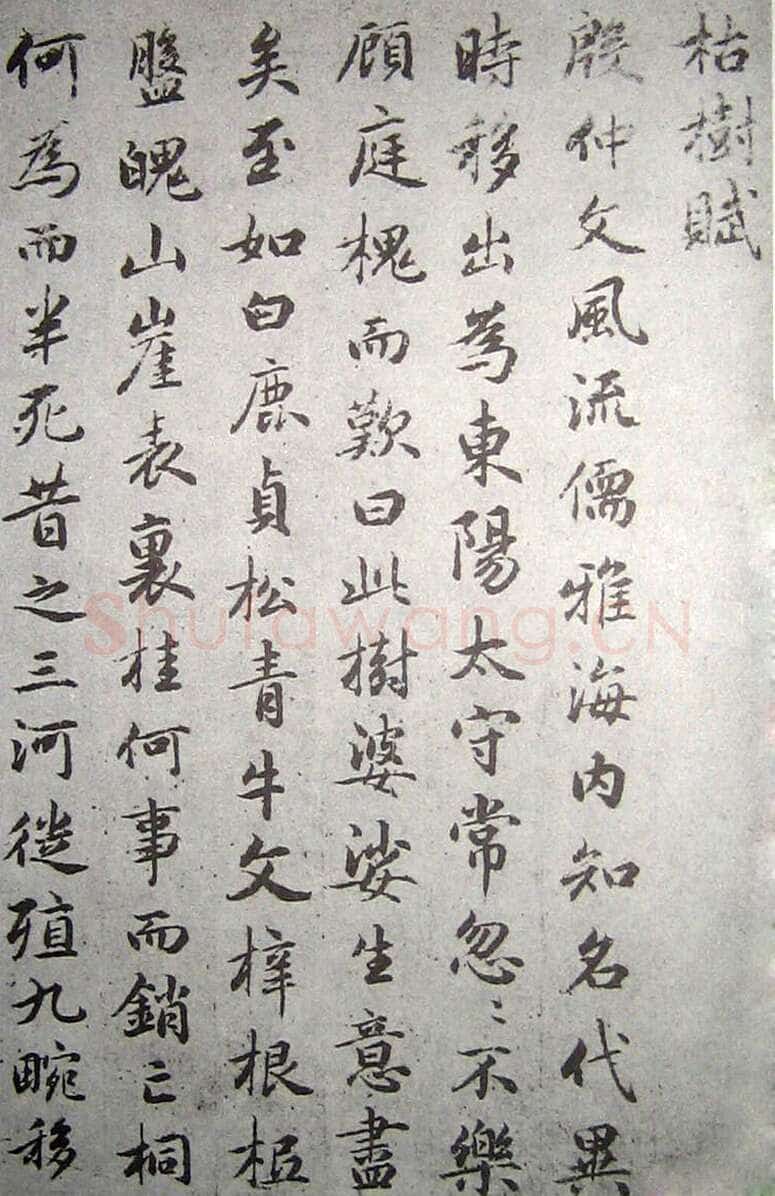 枯樹賦
殷仲文風流儒雅海內知名代異
時移出為東陽太守常忽〻不樂
顧庭槐而歎曰此樹婆娑生意盡
矣至如白鹿貞松青牛文梓根柢
盤魄山崖表裏桂何事而銷亡桐
何為而半死昔之三河徙殖九畹移
Shufawang.CN